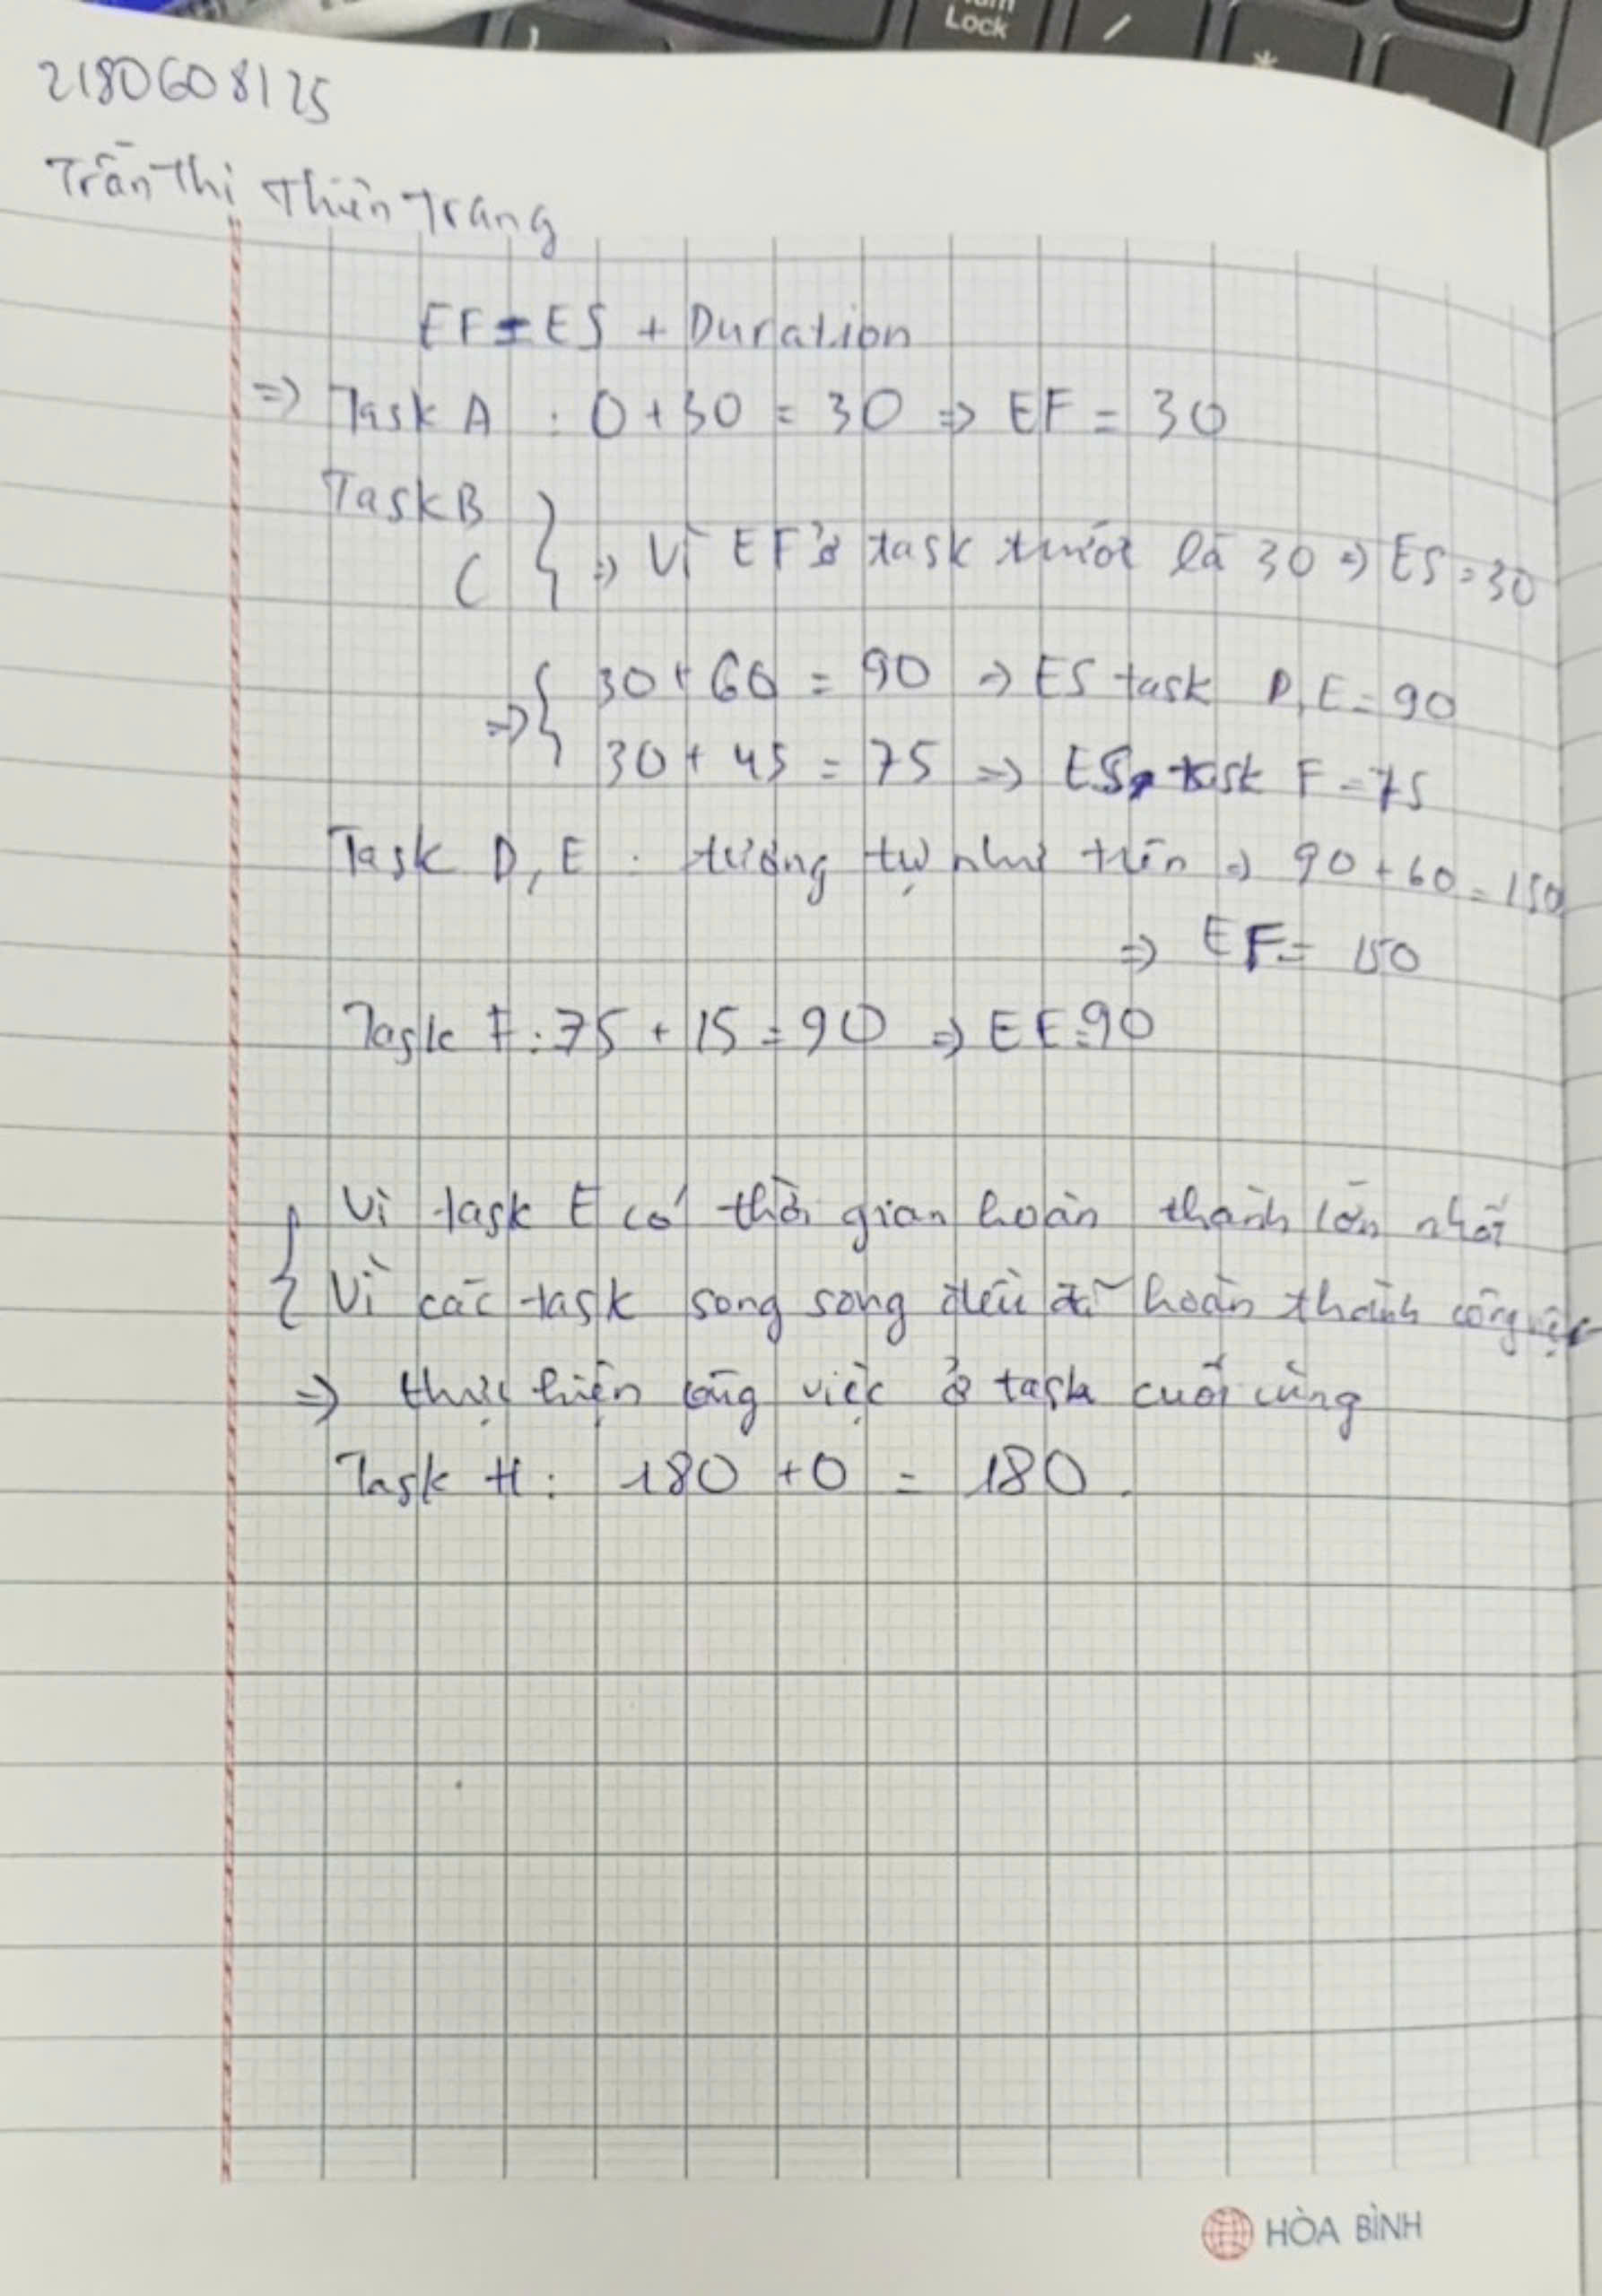 Lock
/
*
2180608125
Trần Thị Thiên Trang
EF = ES + Duration
=> Task A : 0 + 30 = 30 => EF = 30
Task B
C } => Vì EF ở task trước là 30 => ES = 30
=> { 30 + 60 = 90 => ES task D, E = 90
30 + 45 = 75 => ES, task F = 75
Task D, E : tương tự như trên => 90 + 60 = 150
=> EF = 150
Task F : 75 + 15 = 90 => EF = 90
{ Vì task E có thời gian hoàn thành lớn nhất
Vì các task song song đều đã hoàn thành công việc
=> thực hiện công việc ở task cuối cùng
Task H : 180 + 0 = 180.
HÒA BÌNH